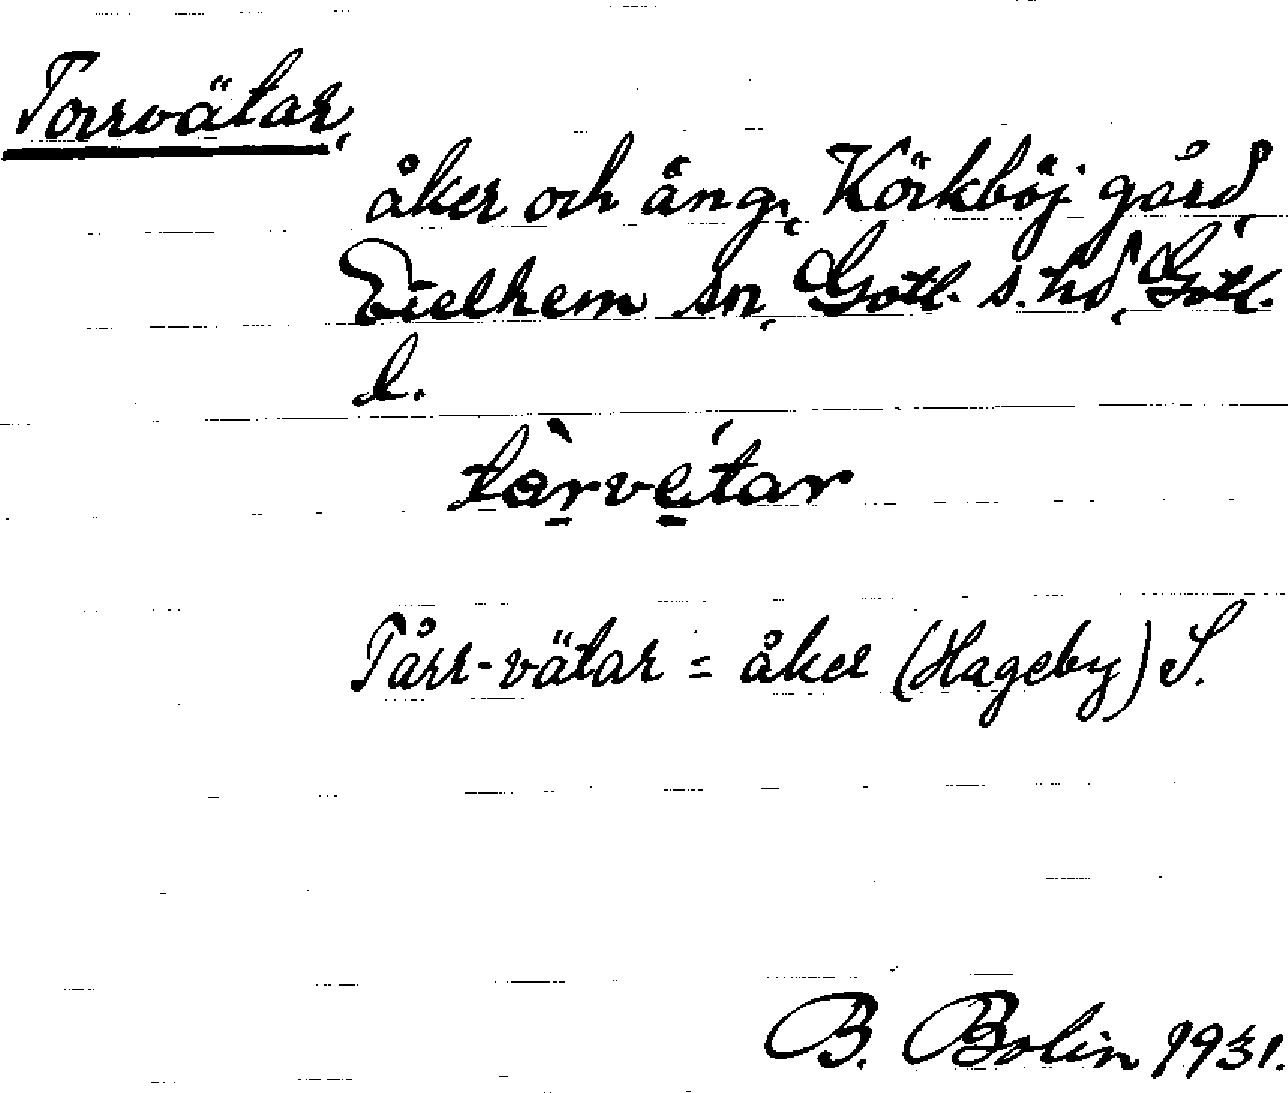 Torrvätar,
åker och äng, Körkböj gård,
Eielhem sn, Gotl. s. hd, Gotl.
l.
tàrvétar
Tårr-vätar = åker (Hageby) S.
B. Bolin 1931.